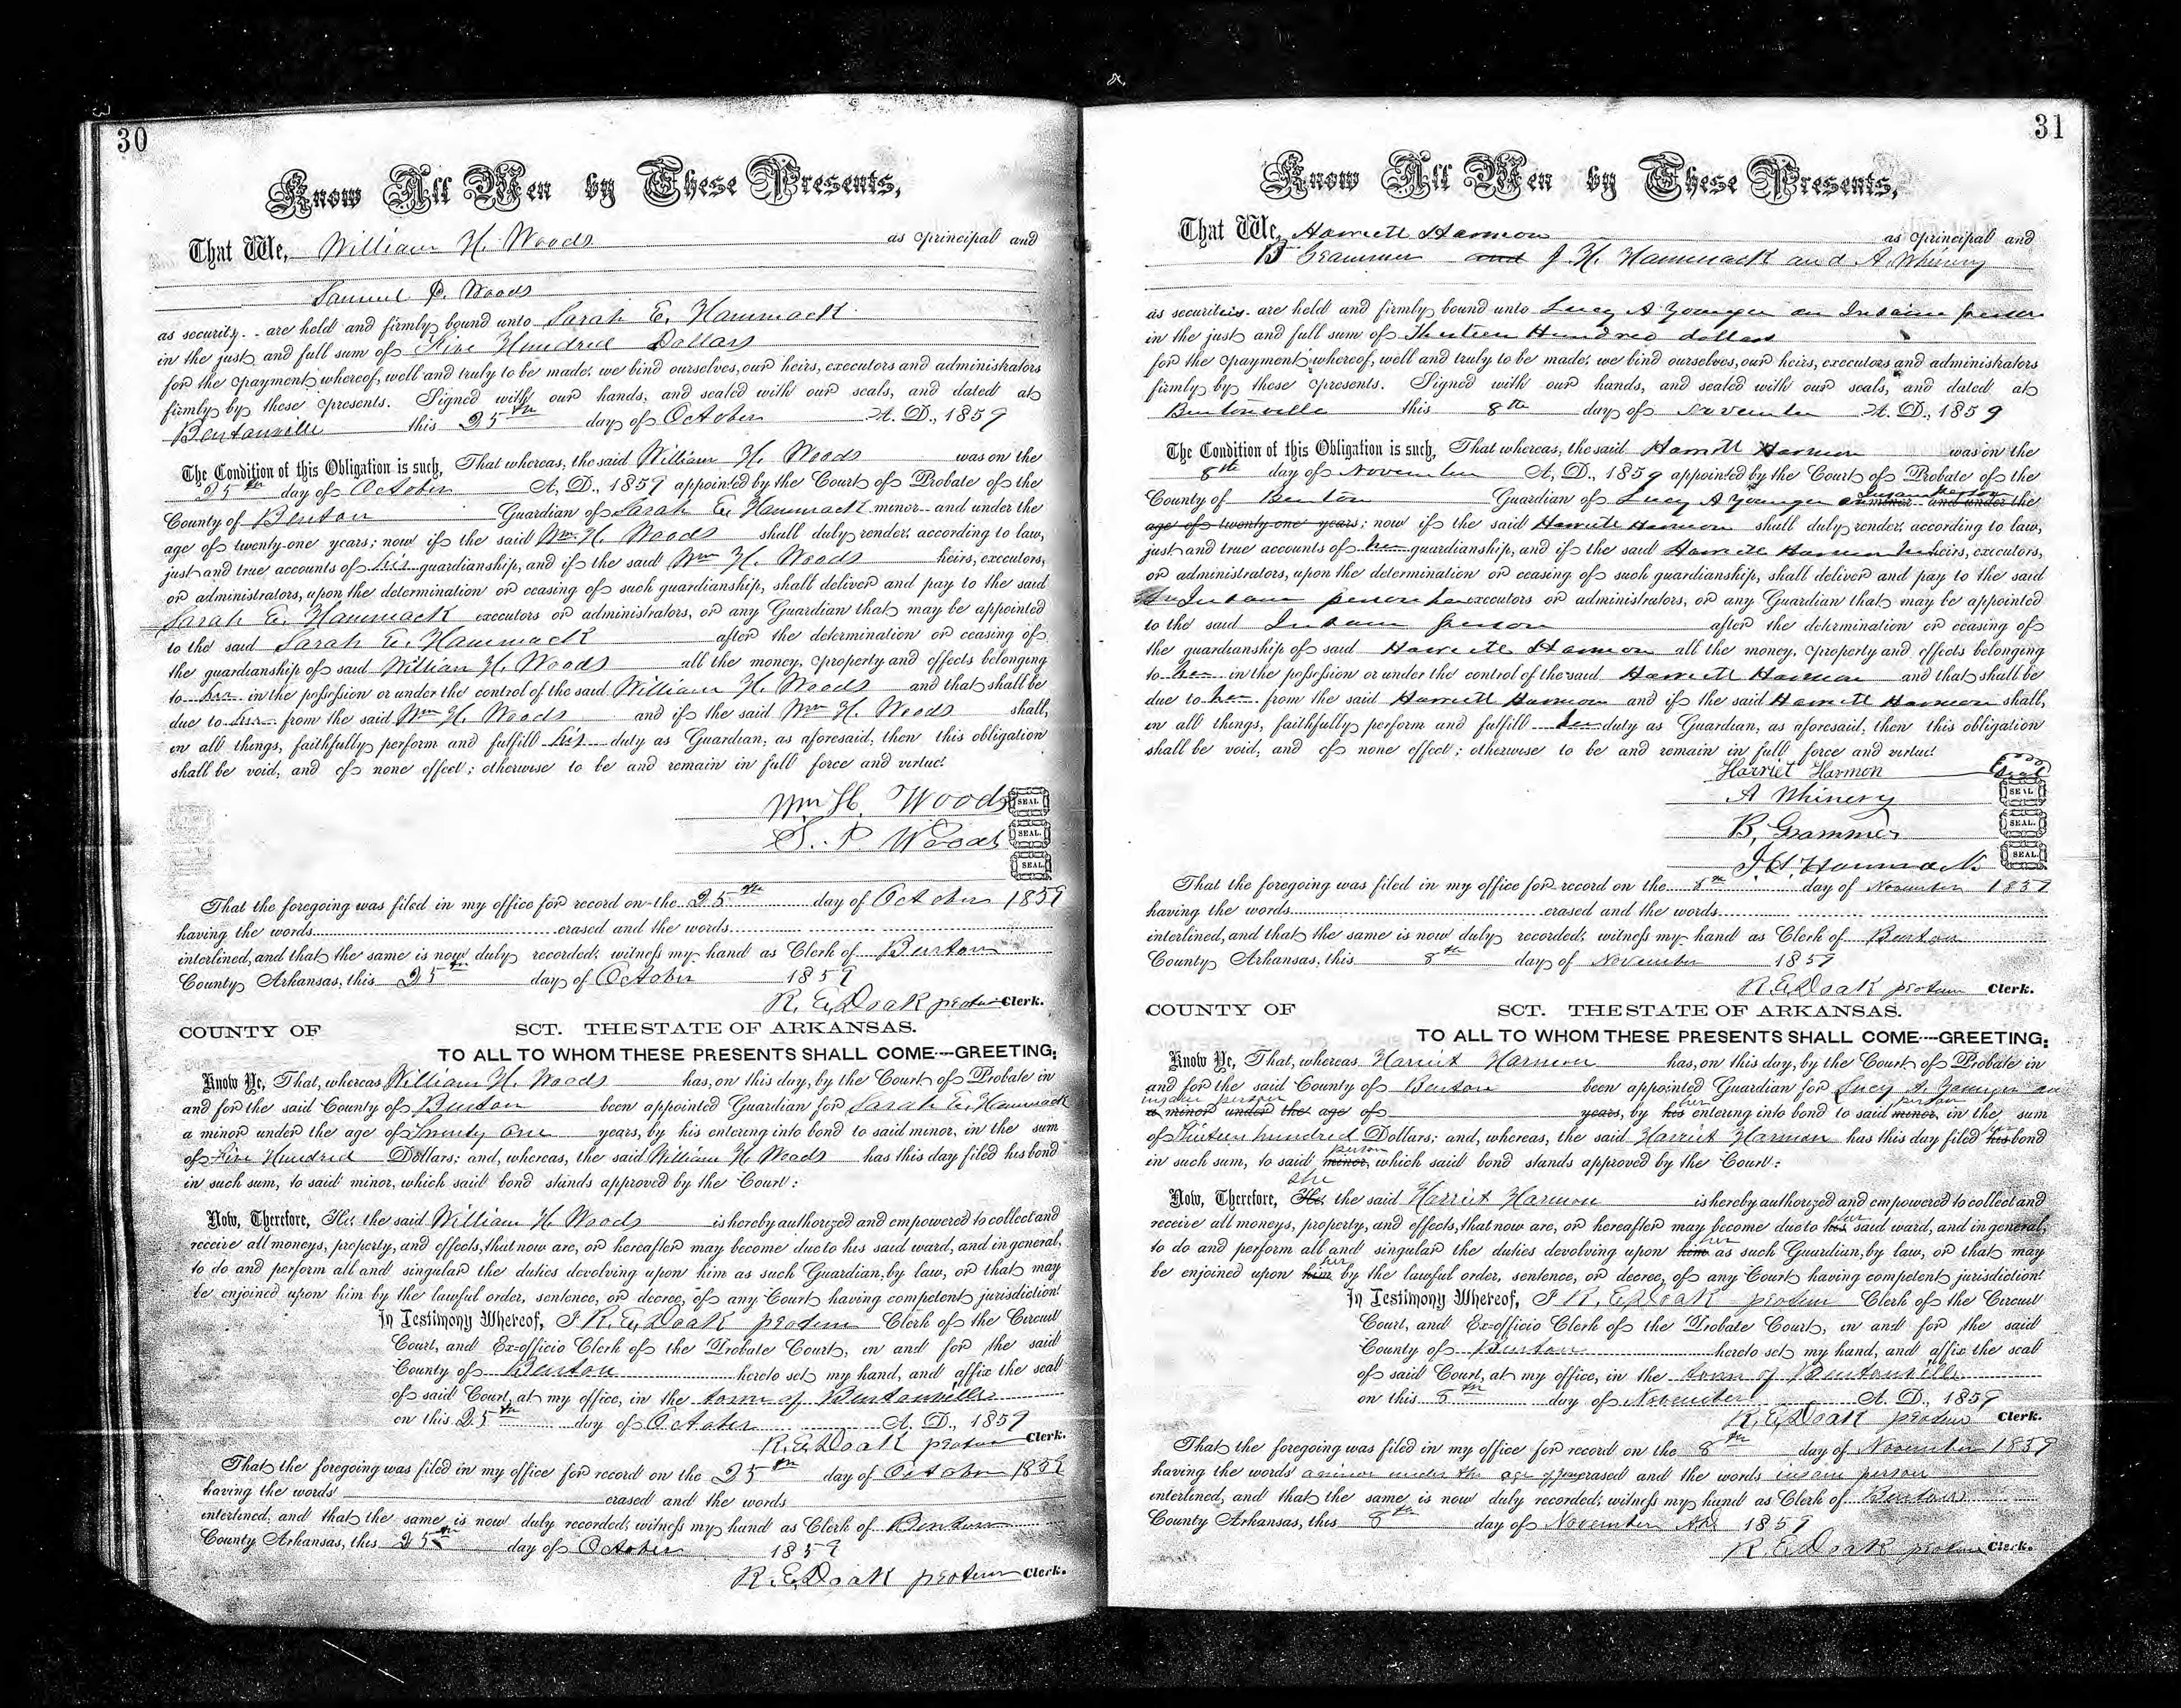 30
Know All Men by These Presents,
That We, William H. Woods as principal and
Samuel P. Woods
as security are held and firmly bound unto Sarah E. Hammack
in the just and full sum of Five Hundred Dollars
for the payment whereof, well and truly to be made, we bind ourselves, our heirs, executors and administrators
firmly by these presents. Signed with our hands, and sealed with our seals, and dated at
Bentonville this 25th day of October A. D., 1859
The Condition of this Obligation is such, That whereas, the said William H. Woods was on the
25th day of October A. D., 1859 appointed by the Court of Probate of the
County of Benton Guardian of Sarah E. Hammack minor and under the
age of twenty-one years; now if the said Wm H. Woods shall duly render, according to law,
just and true accounts of his guardianship, and if the said Wm H. Woods heirs, executors,
or administrators, upon the determination or ceasing of such guardianship, shall deliver and pay to the said
Sarah E. Hammack executors or administrators, or any Guardian that may be appointed
to the said Sarah E. Hammack after the determination or ceasing of
the guardianship of said William H. Woods all the money, property and effects belonging
to her in the possession or under the control of the said William H. Woods and that shall be
due to her from the said Wm H. Woods and if the said Wm H. Woods shall,
in all things, faithfully perform and fulfill his duty as Guardian, as aforesaid, then this obligation
shall be void, and of none effect; otherwise to be and remain in full force and virtue.
Wm H. Woods SEAL
S. P. Woods SEAL.
SEAL.
That the foregoing was filed in my office for record on the 25th day of October 1859
having the words erased and the words
interlined, and that the same is now duly recorded, witness my hand as Clerk of Benton
County Arkansas, this 25th day of October 1859
R. E. Doak protem Clerk.
COUNTY OF SCT. THE STATE OF ARKANSAS.
TO ALL TO WHOM THESE PRESENTS SHALL COME---GREETING:
Know Ye, That, whereas William H. Woods has, on this day, by the Court of Probate in
and for the said County of Benton been appointed Guardian for Sarah E. Hammack
a minor under the age of Twenty One years, by his entering into bond to said minor, in the sum
of Five Hundred Dollars; and, whereas, the said William H. Woods has this day filed his bond
in such sum, to said minor, which said bond stands approved by the Court:
Now, Therefore, He, the said William H. Woods is hereby authorized and empowered to collect and
receive all moneys, property, and effects, that now are, or hereafter may become due to his said ward, and in general,
to do and perform all and singular the duties devolving upon him as such Guardian, by law, or that may
be enjoined upon him by the lawful order, sentence, or decree, of any Court having competent jurisdiction.
In Testimony Whereof, I R. E. Doak protem Clerk of the Circuit
Court, and Ex-officio Clerk of the Probate Court, in and for the said
County of Benton hereto set my hand, and affix the seal
of said Court, at my office, in the town of Bentonville
on this 25th day of October A. D., 1859
R. E. Doak protem Clerk.
That the foregoing was filed in my office for record on the 25th day of October 1859
having the words erased and the words
interlined, and that the same is now duly recorded, witness my hand as Clerk of Benton
County Arkansas, this 25th day of October 1859
R. E. Doak protem Clerk.
31
Know All Men by These Presents,
That We, Harriett Harmon as principal and
B Grammer and J. H. Hammack and A. Whinery
as securities are held and firmly bound unto Lucy A Younger an Insane person
in the just and full sum of Thirteen Hundred dollars
for the payment whereof, well and truly to be made, we bind ourselves, our heirs, executors and administrators
firmly by these presents. Signed with our hands, and sealed with our seals, and dated at
Bentonville this 8th day of November A. D., 1859
The Condition of this Obligation is such, That whereas, the said Harriett Harmon was on the
8th day of November A. D., 1859 appointed by the Court of Probate of the
Insane person
County of Benton Guardian of Lucy A Younger an minor and under the
age of twenty-one years; now if the said Harriett Harmon shall duly render, according to law,
just and true accounts of her guardianship, and if the said Harriett Harmon her heirs, executors,
or administrators, upon the determination or ceasing of such guardianship, shall deliver and pay to the said
Insane person her executors or administrators, or any Guardian that may be appointed
to the said Insane person after the determination or ceasing of
the guardianship of said Harriett Harmon all the money, property and effects belonging
to her in the possession or under the control of the said Harriett Harmon and that shall be
due to her from the said Harriett Harmon and if the said Harriett Harmon shall,
in all things, faithfully perform and fulfill her duty as Guardian, as aforesaid, then this obligation
shall be void, and of none effect; otherwise to be and remain in full force and virtue.
Harriet Harmon Seal
A Whinery SEAL
B. Grammer SEAL.
J. H. Hammack SEAL.
That the foregoing was filed in my office for record on the 8th day of November 1859
having the words erased and the words
interlined, and that the same is now duly recorded, witness my hand as Clerk of Benton
County Arkansas, this 8th day of November 1859
R. E. Doak protem Clerk.
COUNTY OF SCT. THE STATE OF ARKANSAS.
TO ALL TO WHOM THESE PRESENTS SHALL COME---GREETING:
Know Ye, That, whereas Harriet Harmon has, on this day, by the Court of Probate in
and for the said County of Benton been appointed Guardian for Lucy A. Younger an
insane person her person
a minor under the age of years, by his entering into bond to said minor, in the sum
of Thirteen hundred Dollars; and, whereas, the said Harriet Harmon has this day filed his her bond
person
in such sum, to said minor, which said bond stands approved by the Court:
she
Now, Therefore, He, the said Harriet Harmon is hereby authorized and empowered to collect and
receive all moneys, property, and effects, that now are, or hereafter may become due to his her said ward, and in general,
her
to do and perform all and singular the duties devolving upon him as such Guardian, by law, or that may
her
be enjoined upon him by the lawful order, sentence, or decree, of any Court having competent jurisdiction.
In Testimony Whereof, I R. E. Doak protem Clerk of the Circuit
Court, and Ex-officio Clerk of the Probate Court, in and for the said
County of Benton hereto set my hand, and affix the seal
of said Court, at my office, in the town of Bentonville
on this 8th day of November A. D., 1859
R. E. Doak protem Clerk.
That the foregoing was filed in my office for record on the 8th day of November 1859
having the words a minor under the age of erased and the words insane person
interlined, and that the same is now duly recorded, witness my hand as Clerk of Benton
County Arkansas, this 8th day of November 1859
R. E. Doak protem Clerk.